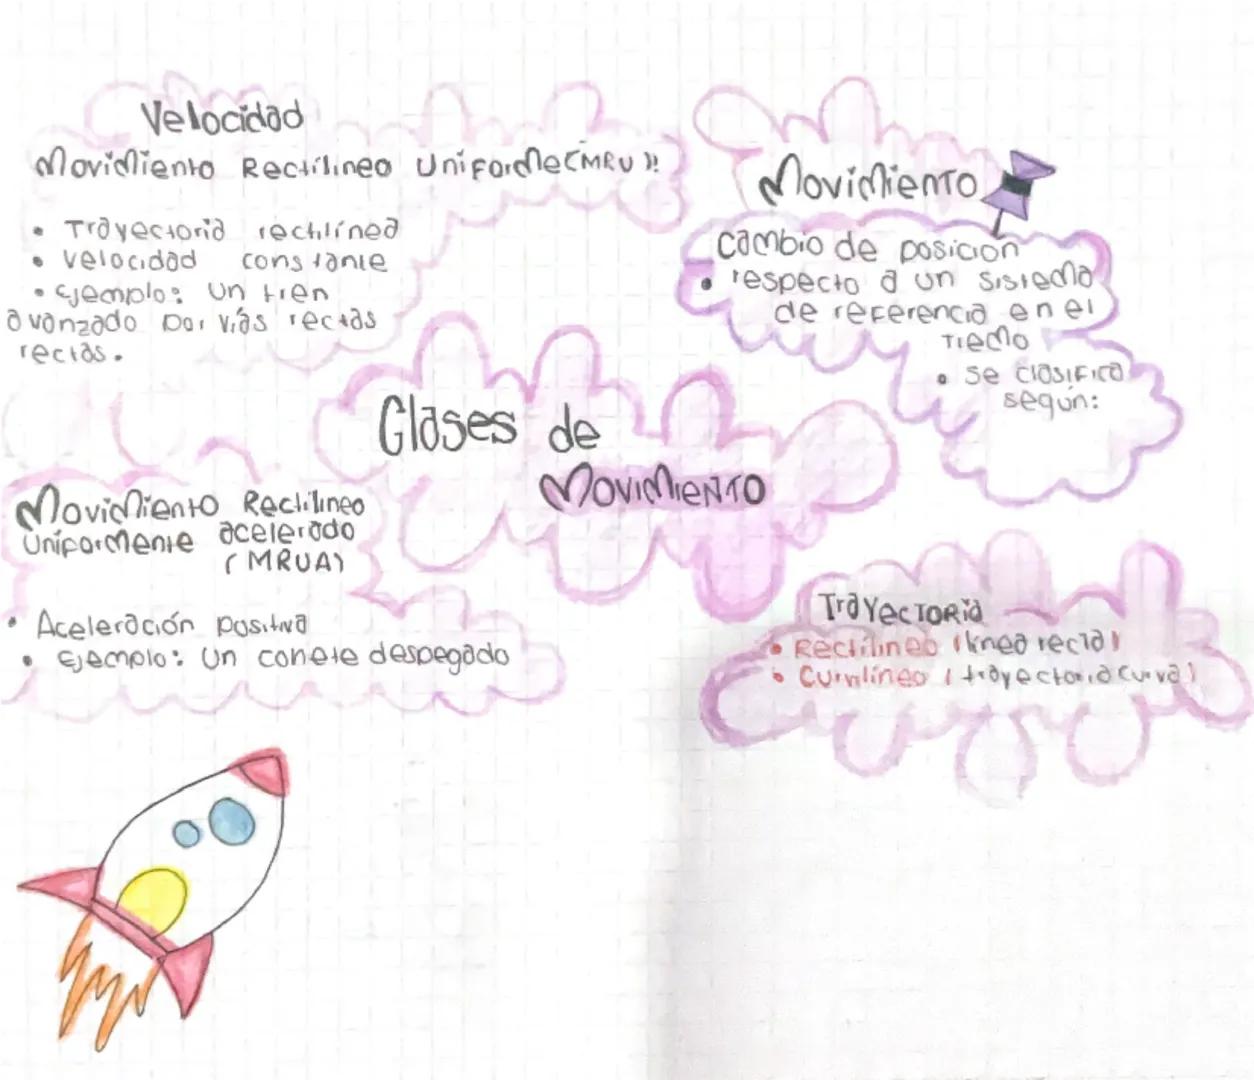 Velocidad
Movimiento Rectilineo Uniforme (MRU)!
• Trayectoria rectilínea
• Velocidad constante
• Ejemplo: Un tren
avanzado por vías rectas
rectas.
Movimiento
Cambio de posición
• respecto a un sistema
de referencia en el
Tiemo
• Se clasifica
según:
Clases de
Movimiento
Movimiento Rectilineo
Uniformente acelerado
(MRUA)
• Aceleración positiva
• Ejemplo: Un cohete despegado
Trayectoria
• Rectilineo (linea recta)
• Curvilíneo (trayectoria curva)